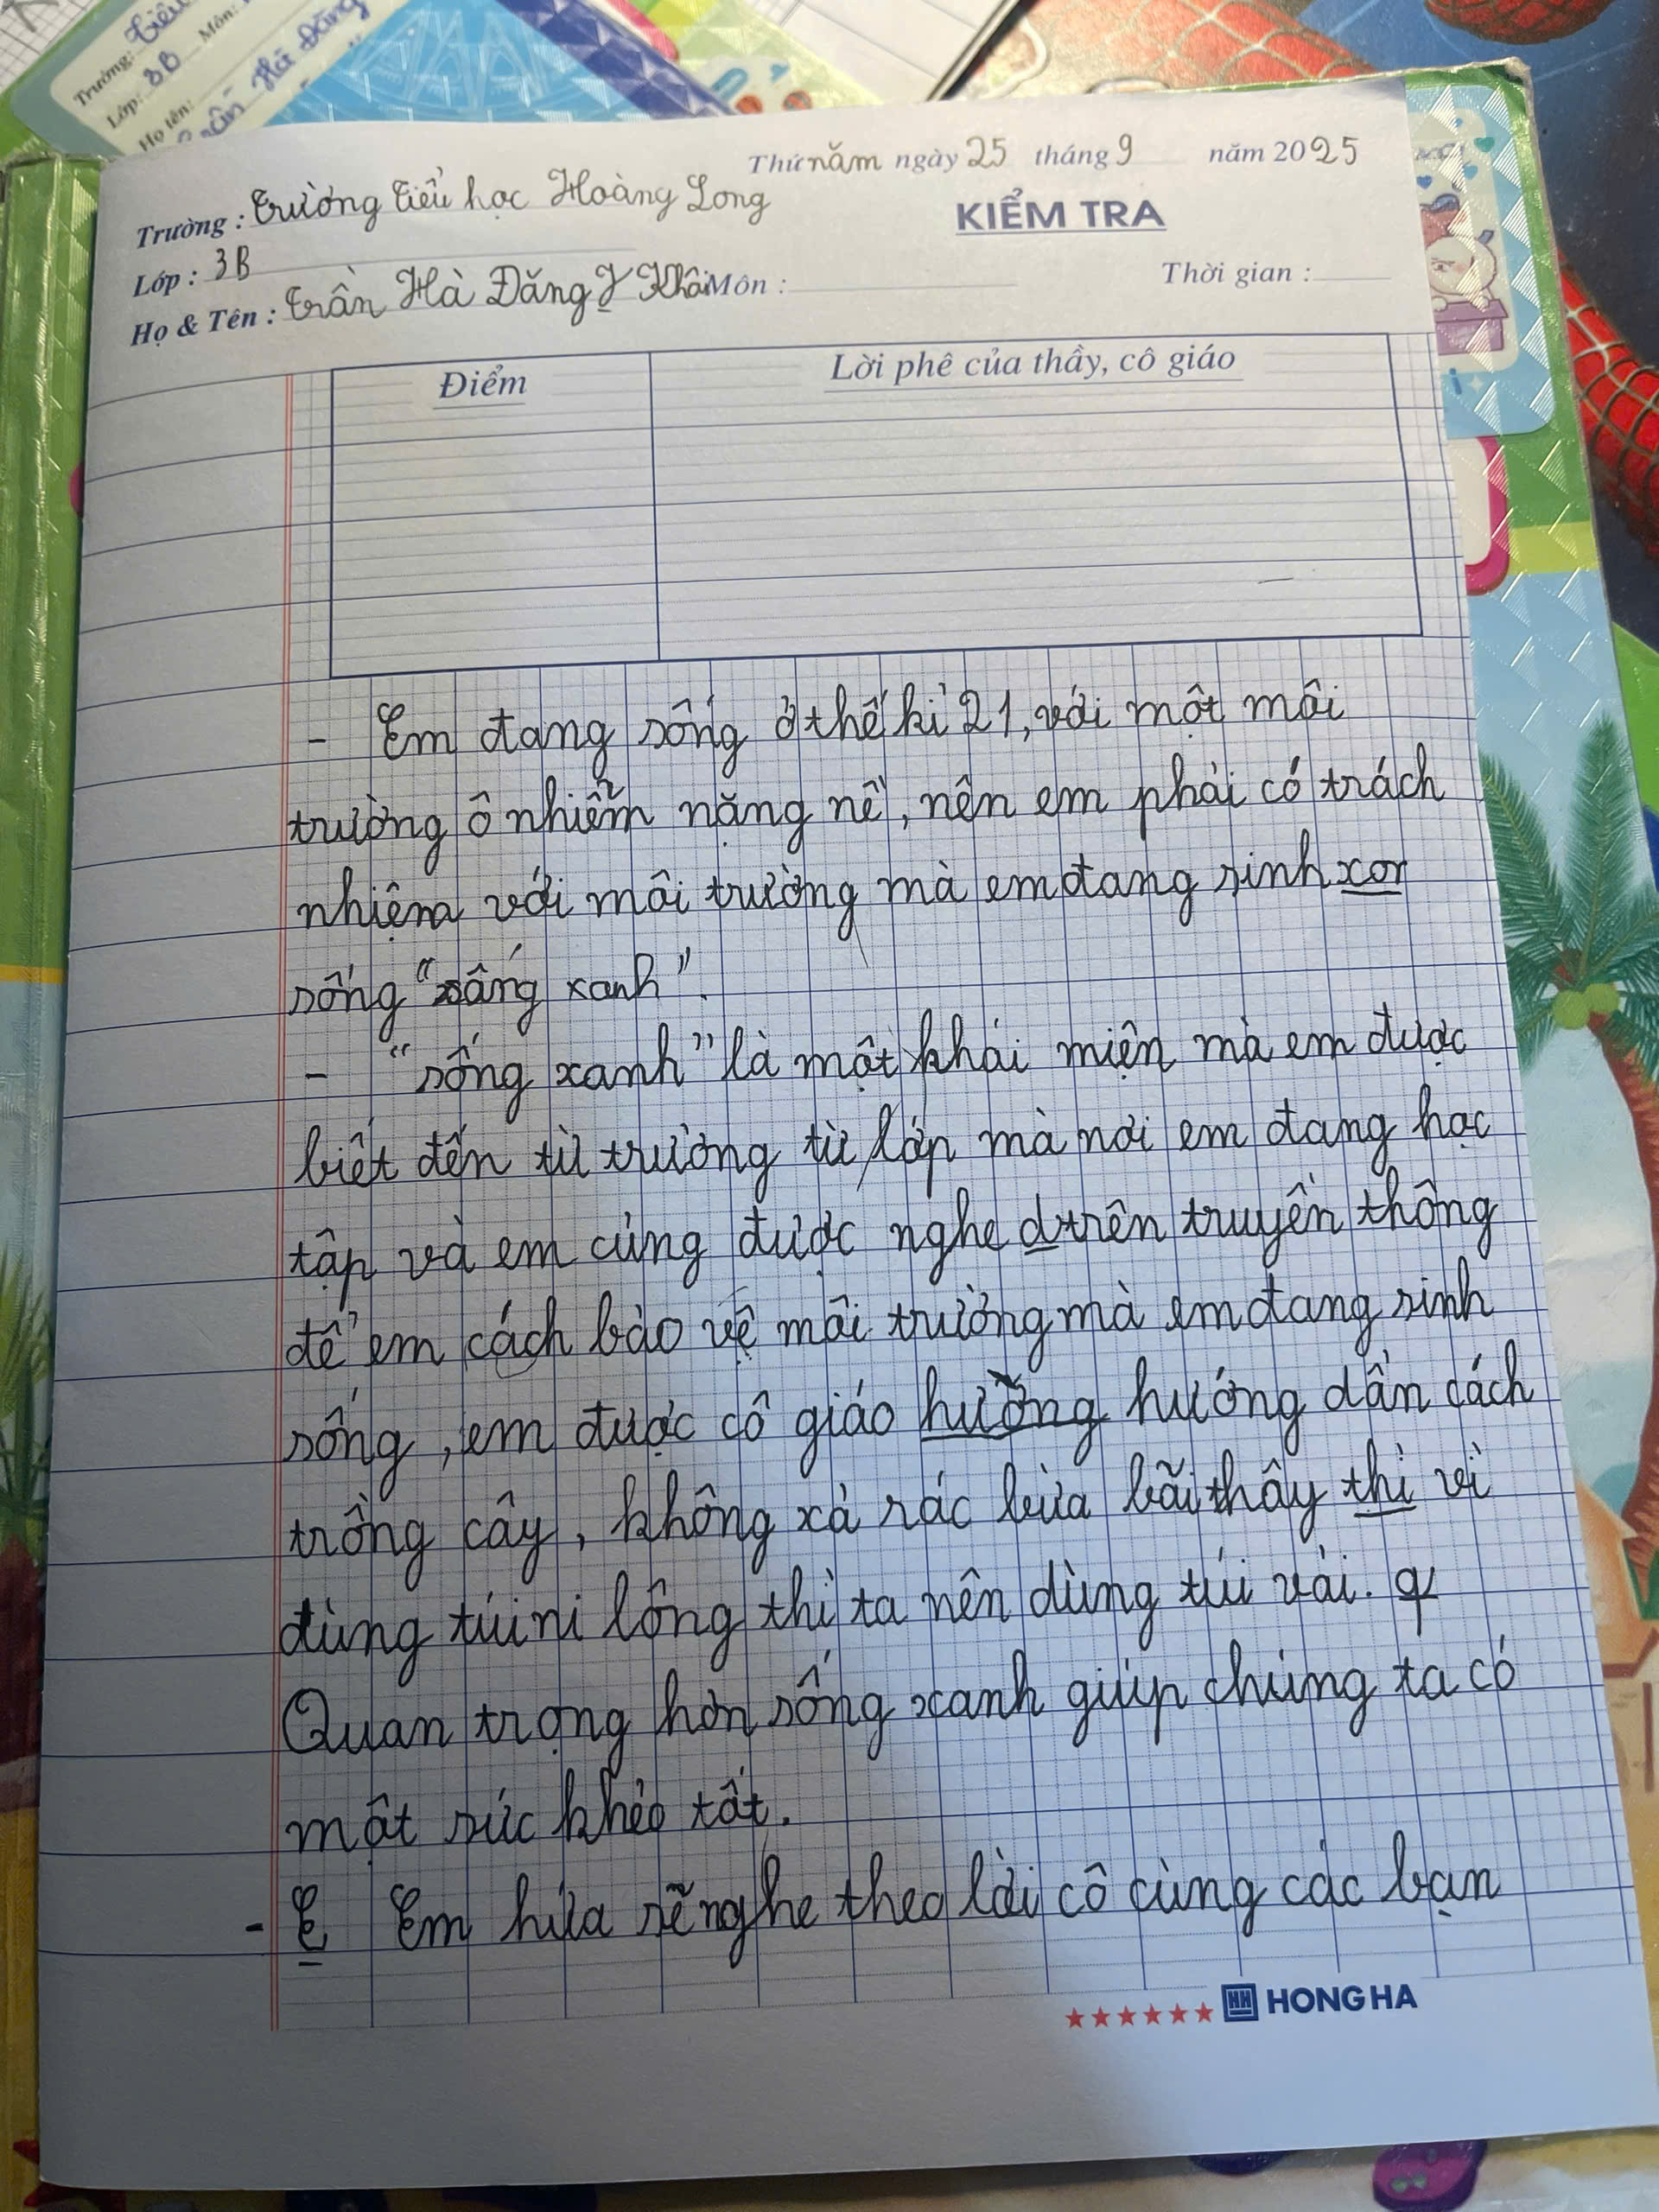 Trường: Tiểu
Lớp: 3B Môn:
Họ tên:
Trần Hà Đăng
Thứ năm ngày 25 tháng 9 năm 2025
Trường : Trường Tiểu học Hoàng Long
KIỂM TRA
Lớp : 3B
Họ & Tên : Trần Hà Đăng Khôi Môn : Thời gian :
Điểm Lời phê của thầy, cô giáo
- Em đang sống ở thế kỉ 21, với một môi
trường ô nhiễm nặng nề, nên em phải có trách
nhiệm với môi trường mà em đang sinh xor
sống "sống xanh".
- "sống xanh" là một khái miện mà em được
biết đến từ trường từ lớp mà nơi em đang học
tập và em cũng được nghe d trên truyền thông
để em cách bảo vệ môi trường mà em đang sinh
sống, em được cô giáo hường hướng dẫn cách
trồng cây, không xả rác bừa bãi thây thì vì
dùng túi ni lông thì ta nên dùng túi vải. q
Quan trọng hơn sống xanh giúp chúng ta có
một sức khỏe tốt.
- E Em hứa sẽ nghe theo lời cô cùng các bạn
HH HONG HA